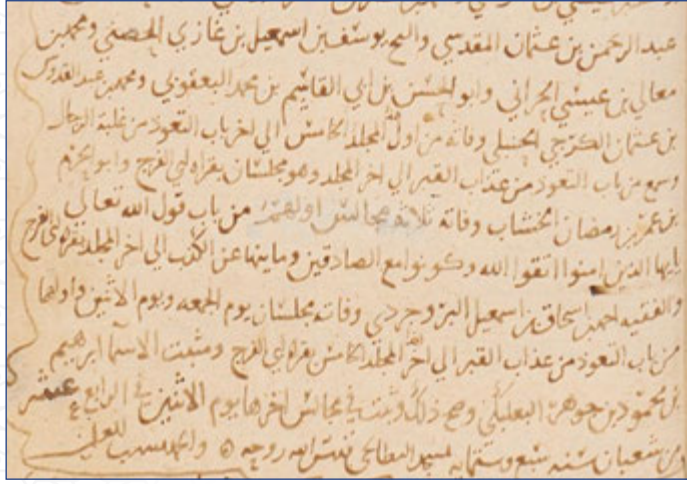 عبد الرحمن بن عثمان المقدسي والشيخ يوسف بن اسمعيل بن غازي الحصني ومحمد بن
معالي بن عيسي الحراني وابو الحسن بن ابي القاسم بن محمد اليعقوبي ومحمد بن عبد القدوس
بن عثمان الكرجي الحنبلي وفاته من اول المجلد الخامس الي اخر باب التعوذ من غلبة الرجال
وسمع من باب التعوذ من عذاب القبر الي اخر المجلد وهو مجلسان بقراه ابي الفرج وابو الحرم
بن عمر بن رمضان الخشاب وفاته ثلاثة مجالس اولهم من باب قول الله تعالي
يايها الذين امنوا اتقوا الله وكونوا مع الصادقين وما ينها عن الكذب الي اخر المجلد بقراه ابي الفرج
والفقيه احمد بن اسحاق بن اسمعيل البزوجردي وفاته مجلسان يوم الجمعه ويوم الاثنين واولهما
من باب التعوذ من عذاب القبر الي اخر المجلد الخامس بقراه ابي الفرج ومثبت الاسما ابرهيم
بن محمود بن جوهر البعلبكي وصح ذلك وثبت في مجالس اخرها يوم الاثنين في الرابع عشر
من شعبان سنه سبع وستمايه قدس الله روحه والحمد لله رب العالمين